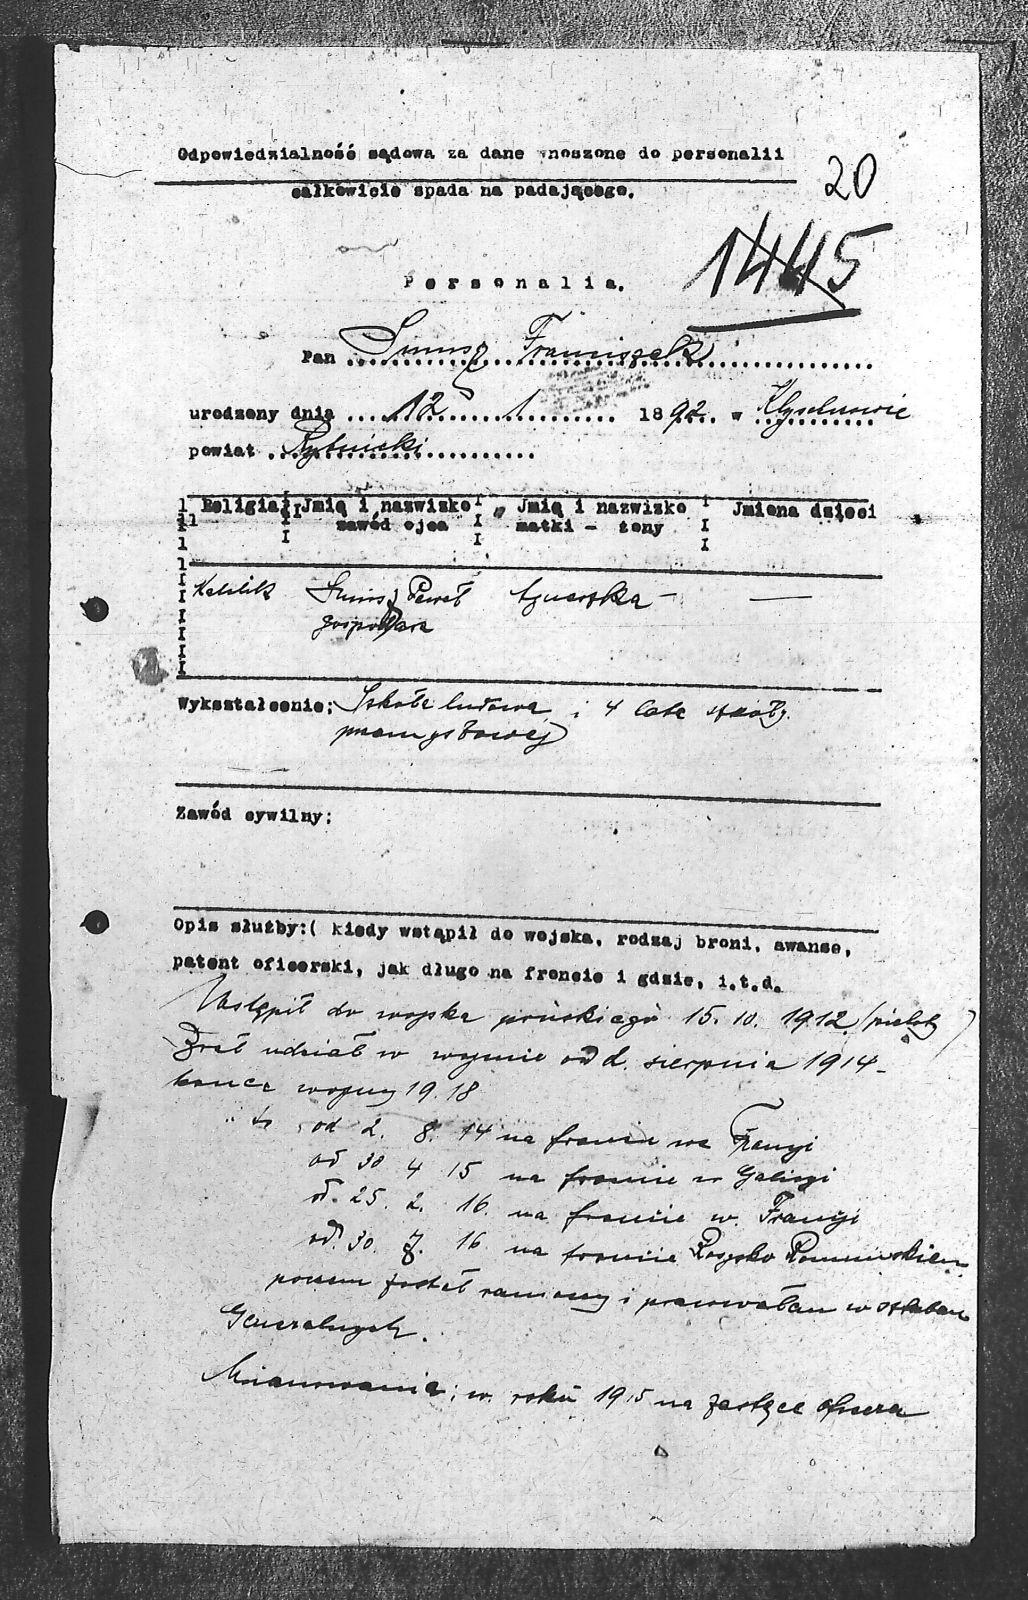 Odpowiedzialność sądowa za dane wnoszone do personalii
całkowicie spada na padającego.
20
1445
Personalia.
Pan Franciszek
urodzony dnia 12 1 1892 w
powiat Rybnicki
Religia Jmię i nazwizko Jmię i nazwizko Jmiona dzieci
zawód ojca matki - żony
Katolik Paweł Agnieszka — —
gospodarz
Wykształcenie: Szkoła ludowa i 4 lata szkoły
przemysłowej
Zawód cywilny:
Opis służby:( kiedy wstąpił do wojska, rodzaj broni, awanse,
patent oficerski, jak długo na froncie i gdzie, i.t.d.
Wastąpił do wojska pruskiego 15. 10. 1912.
Brał udział w wojnie od d. sierpnia 1914 -
konca wojny 19.18
od 2. 8. 14 na froncie we Francji
od 30 4 15 na froncie w Galicji
od. 25. 2. 16. na froncie w. Francji
od. 30. 7. 16 na froncie Rosysko
poczem został raniony i pracowałam w sztabach
Generalnych.
Mianowania: w. roku 1915 na zastęce oficera